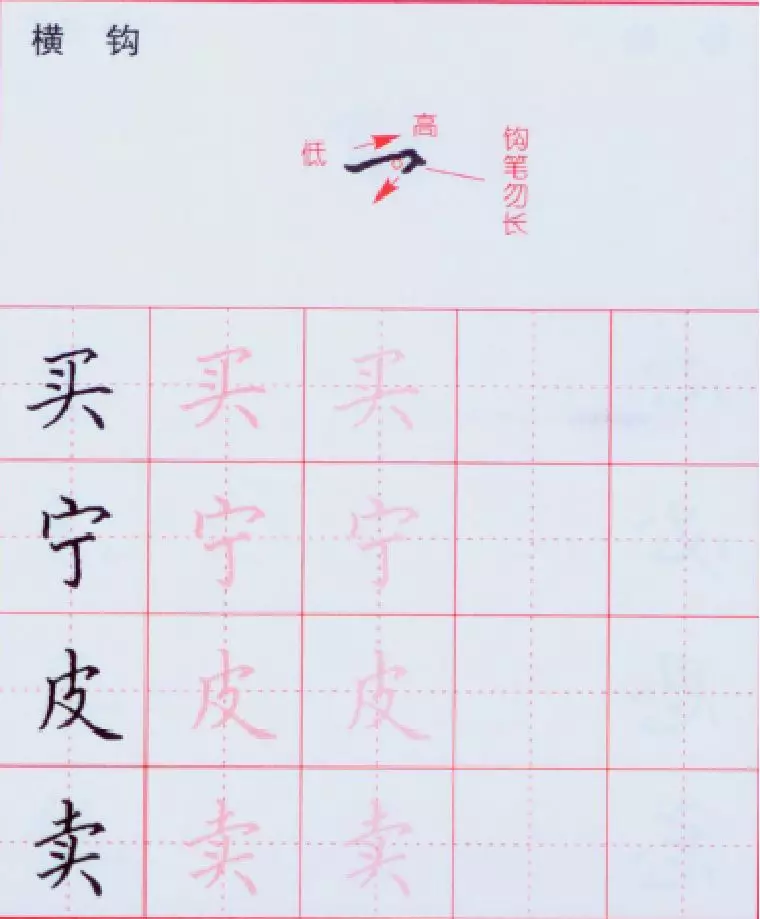 横 钩
高
低
钩笔勿长
买 买 买
宁 宁 宁
皮 皮 皮
卖 卖 卖